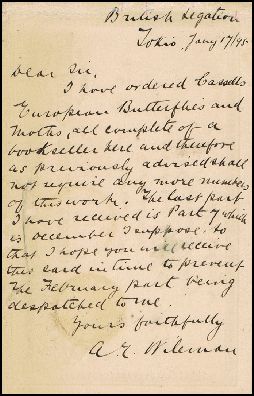 British Legation
Tokio, Jany 17/95
Dear Sir,
I have ordered Cassells
European Butterflies and
Moths, all complete of a
bookseller here and therefore
as previously advised shall
not require any more numbers
of this work. The last part
I have received is Part 7 which
is December I suppose. so
that I hope you will receive
this card in time to prevent
the February part being
despatched to me.
Yours faithfully
A. E. Wileman